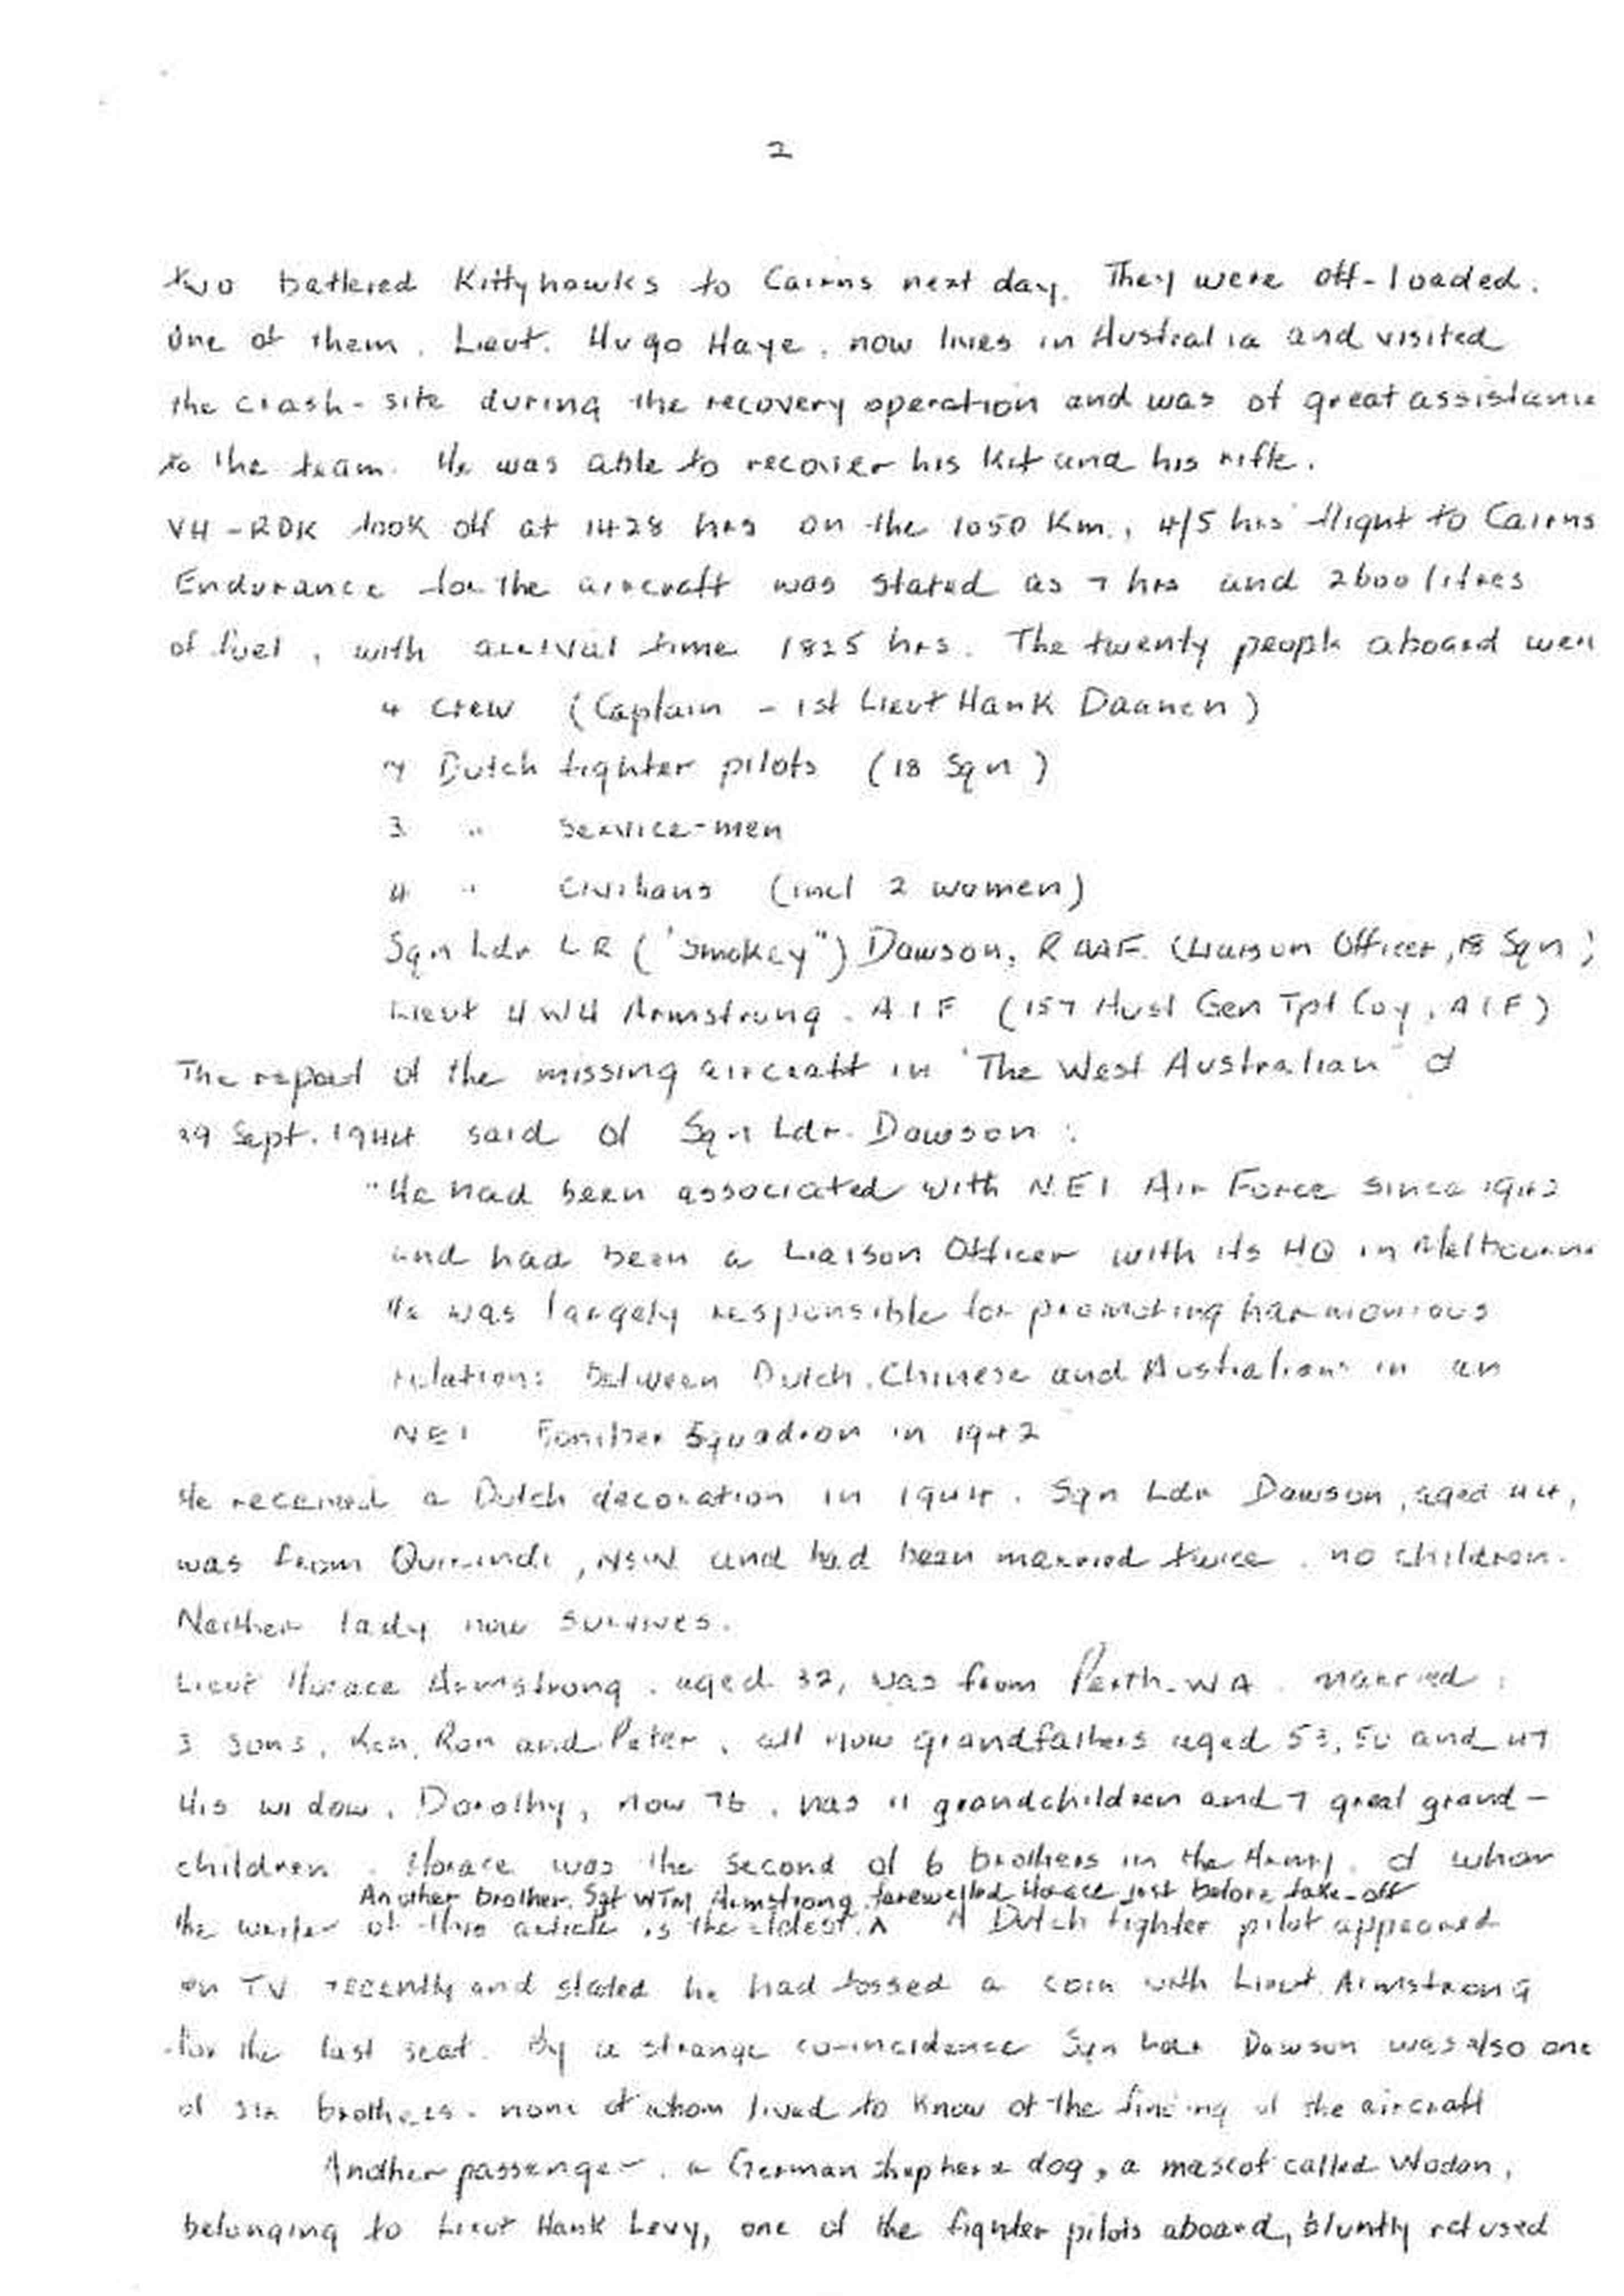 2
two battered Kittyhawks to Cairns next day. They were off-loaded.
One of them, Lieut. Hugo Haye, now lives in Australia and visited
the crash-site during the recovery operation and was of great assistance
to the team. He was able to recover his kit and his rifle.
VH-RDK took off at 1428 hrs on the 1050 Km, 4/5 hrs flight to Cairns
Endurance for the aircraft was stated as 7 hrs and 2600 litres
of fuel, with arrival time 1825 hrs. The twenty people aboard were
4 crew (Captain - 1st Lieut Hank Daanen)
7 Dutch fighter pilots (18 Sqn)
3 " Service-men
4 " Civilians (incl 2 women)
Sqn Ldr LR ("Smokey") Dawson, RAAF. (Liaison Officer, 18 Sqn)
Lieut HWH Armstrong. AIF (157 Aust Gen Tpt Coy, AIF)
The report of the missing aircraft in "The West Australian" of
29 Sept. 1944 said of Sqn Ldr. Dawson:
"He had been associated with NEI Air Force since 1942
and had been a Liaison Officer with its HQ in Melbourne
He was largely responsible for promoting harmonious
relations between Dutch, Chinese and Australians in an
NEI Bomber Squadron in 1942
He received a Dutch decoration in 1944. Sqn Ldr Dawson, aged 44,
was from Quirindi, NSW and had been married twice, no children.
Neither lady now survives.
Lieut Horace Armstrong, aged 32, was from Perth. WA. married,
3 sons, Ken, Ron and Peter, all now grandfathers aged 53, 50 and 47
His widow, Dorothy, now 76, has 11 grandchildren and 7 great grand-
children. Horace was the second of 6 brothers in the Army, of whom
Another brother, Sgt WTM Armstrong, farewelled Horace just before take-off
the writer of this article is the eldest. ^ A Dutch fighter pilot appeared
on TV recently and stated he had tossed a coin with Lieut. Armstrong
for the last seat. By a strange co-incidence Sqn Ldr Dawson was also one
of six brothers - none of whom lived to know of the finding of the aircraft
Another passenger, a German shepherd dog, a mascot called Wodan,
belonging to Lieut Hank Levy, one of the fighter pilots aboard, bluntly refused